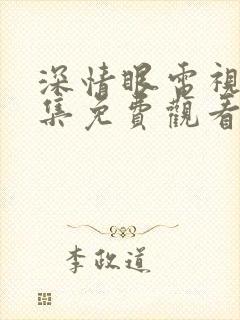 深情眼電視
集免費觀看
李政道